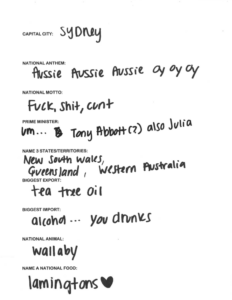 CAPITAL CITY: Sydney
NATIONAL ANTHEM:
Aussie Aussie Aussie oy oy oy
NATIONAL MOTTO:
Fuck, shit, cunt
PRIME MINISTER:
um... Tony Abbott(?) also Julia
NAME 3 STATES/TERRITORIES:
New South Wales,
Queensland, Western Australia
BIGGEST EXPORT:
tea tree oil
BIGGEST IMPORT:
alcohol ... you drunks
NATIONAL ANIMAL:
wallaby
NAME A NATIONAL FOOD:
lamingtons ♥